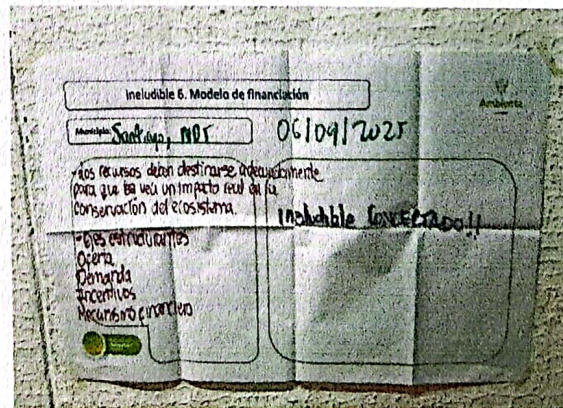 Ineludible 6. Modelo de financiación
Ambiente
Municipio: Santiago, NDS
06/09/2025
- Los recursos deben destinarse adecuadamente
para que se vea un impacto real en la
conservación del ecosistema.
- Ejes estructurantes
Oferta
Demanda
Incentivos
Mecanismo financiero
Ineludible CONCERTADO!!